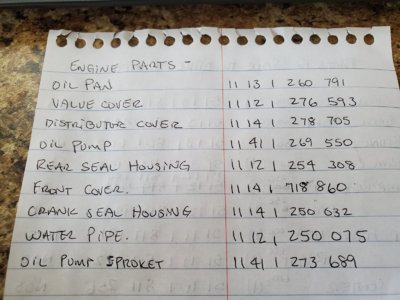 ENGINE PARTS -
OIL PAN 11 13 1 260 791
VALUE COVER 11 12 1 276 593
DISTRIBUTOR COVER 11 14 1 278 705
OIL PUMP 11 41 1 269 550
REAR SEAL HOUSING 11 12 1 254 308
FRONT COVER. 11 14 1 718 860
CRANK SEAL HOUSING 11 14 1 250 632
WATER PIPE. 11 12 1 250 075
OIL PUMP SPROKET 11 41 1 273 689